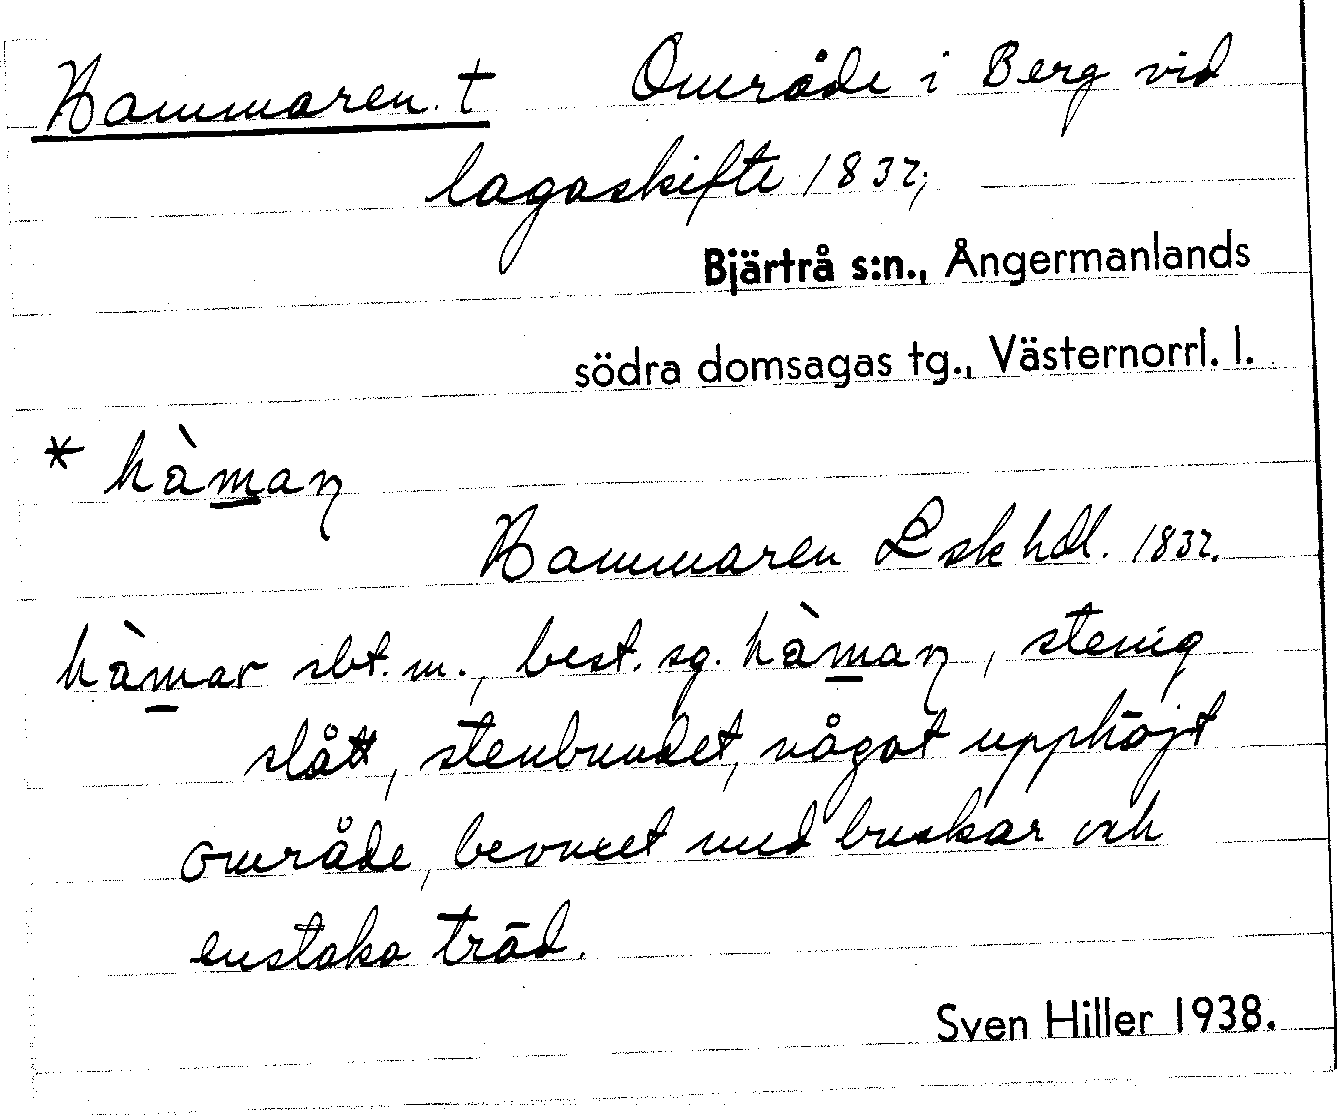 Hammaren. † Område i Berg vid
lagaskifte 1832;
Bjärtrå s:n., Ångermanlands
södra domsagas tg., Västernorrl. l.
* hàmaꞑ
Hammaren Lskhdl. 1832.
hàmar sbt. m., best. sg. hàmaꞑ, stenig
slått, stenbundet, något upphöjt
område, bevuxet med buskar och
enstaka träd.
Sven Hiller 1938.